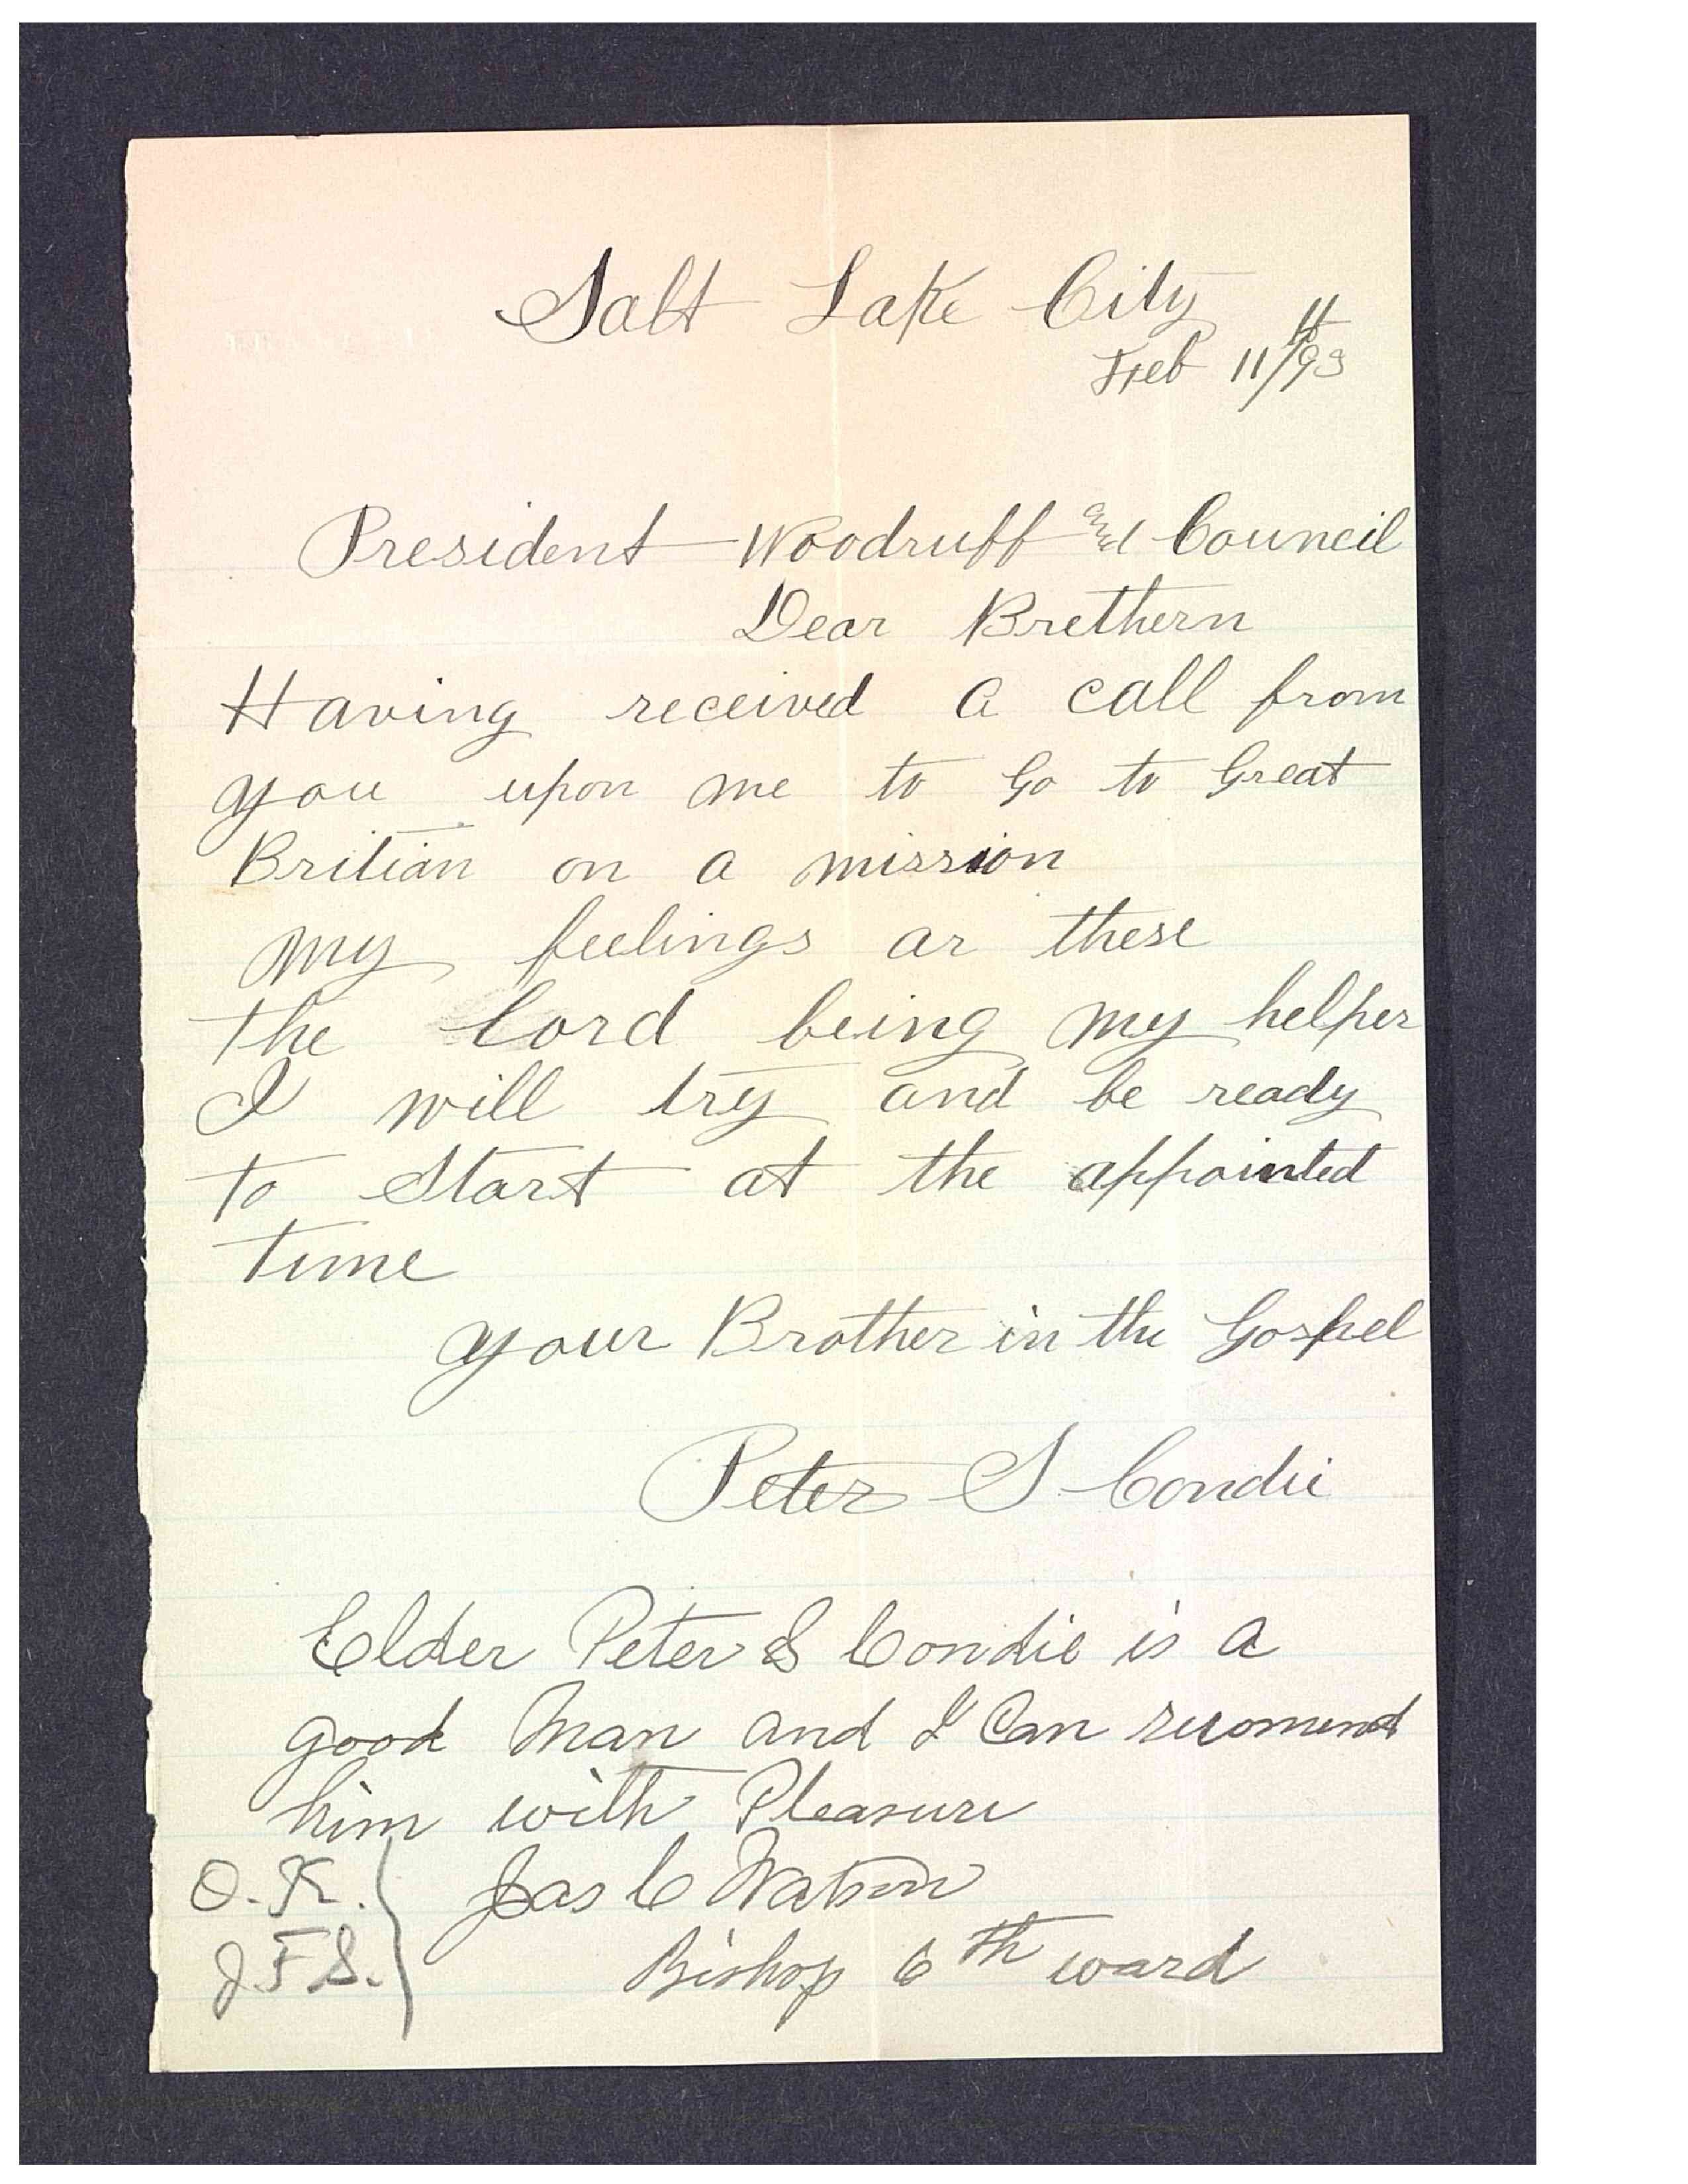 Salt Lake City
Feb 11th/93
President Woodruff and Council
Dear Brethern
Having received a call from
you upon me to Go to Great
Britian on a mission
my feelings ar these
the lord being my helper
I will try and be ready
to Start at the appointed
time
your Brother in the Gospel
Peter S Condie
Elder Peter S Condie is a
good Man and I Can recomend
him with Pleasure
O.K. Jas C Watson
J.F.S. Bishop 6th ward